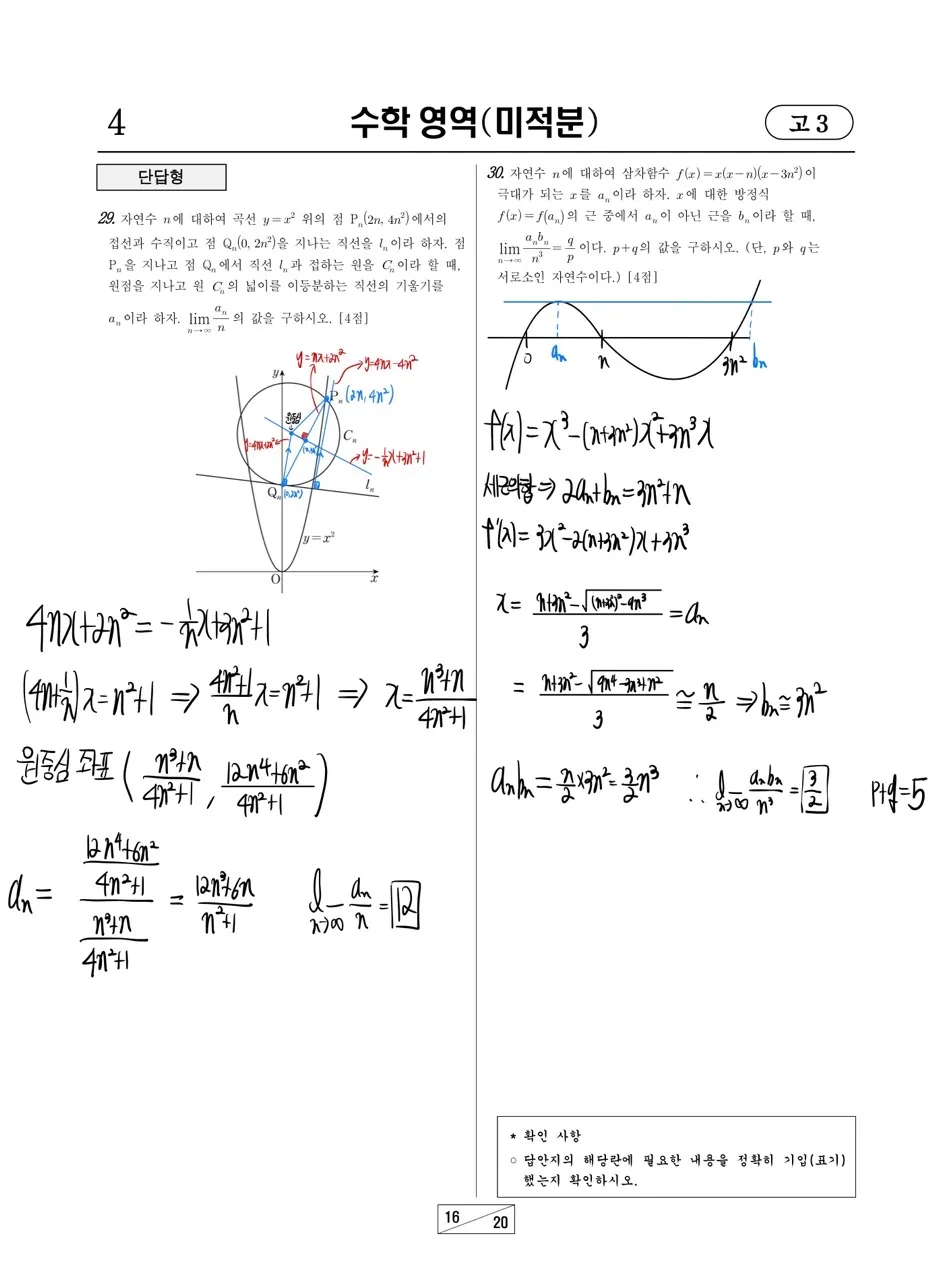 4
수학 영역(미적분)
고 3
단답형
29. 자연수 n에 대하여 곡선 y=x² 위의 점 Pₙ(2n, 4n²)에서의
접선과 수직이고 점 Qₙ(0, 2n²)을 지나는 직선을 lₙ이라 하자. 점
Pₙ을 지나고 점 Qₙ에서 직선 lₙ과 접하는 원을 Cₙ이라 할 때,
원점을 지나고 원 Cₙ의 넓이를 이등분하는 직선의 기울기를
aₙ이라 하자. lim_{n→∞} aₙ/n 의 값을 구하시오. [4점]
y=nx+2n²
y=4nx-4n²
y
Pₙ (2n, 4n²)
원중심
Cₙ
y=-1/n x+3n²+1
lₙ
Qₙ (0, 2n²)
y=x²
O
x
4nx+2n²=-1/n x+3n²+1
(4n+1/n)x=n²+1 ⇒ (4n²+1)/n x=n²+1 ⇒ x=(n³+n)/(4n²+1)
원중심 좌표 ((n³+n)/(4n²+1), (12n⁴+6n²)/(4n²+1))
aₙ= ((12n⁴+6n²)/(4n²+1))/((n³+n)/(4n²+1)) = (12n³+6n)/(n²+1) l_{n→∞} aₙ/n = 12
30. 자연수 n에 대하여 삼차함수 f(x)=x(x-n)(x-3n²)이
극대가 되는 x를 aₙ이라 하자. x에 대한 방정식
f(x)=f(aₙ)의 근 중에서 aₙ이 아닌 근을 bₙ이라 할 때,
lim_{n→∞} aₙbₙ/n³ = q/p 이다. p+q의 값을 구하시오. (단, p와 q는
서로소인 자연수이다.) [4점]
0 aₙ n 3n² bₙ
f(x)=x³-(n+3n²)x²+3n³x
세근의합⇒ 2aₙ+bₙ=3n²+n
f'(x)=3x²-2(n+3n²)x+3n³
x= (n+3n²-√((n+3n²)²-9n³))/3 =aₙ
= (n+3n²-√(9n⁴-3n³+n²))/3 ≅ n/2 ⇒ bₙ≅3n²
aₙbₙ= n/2 ×3n²= 3/2 n³ ∴ l_{n→∞} aₙbₙ/n³ = 3/2 p+q=5
* 확인 사항
○ 답안지의 해당란에 필요한 내용을 정확히 기입(표기)
했는지 확인하시오.
16
20